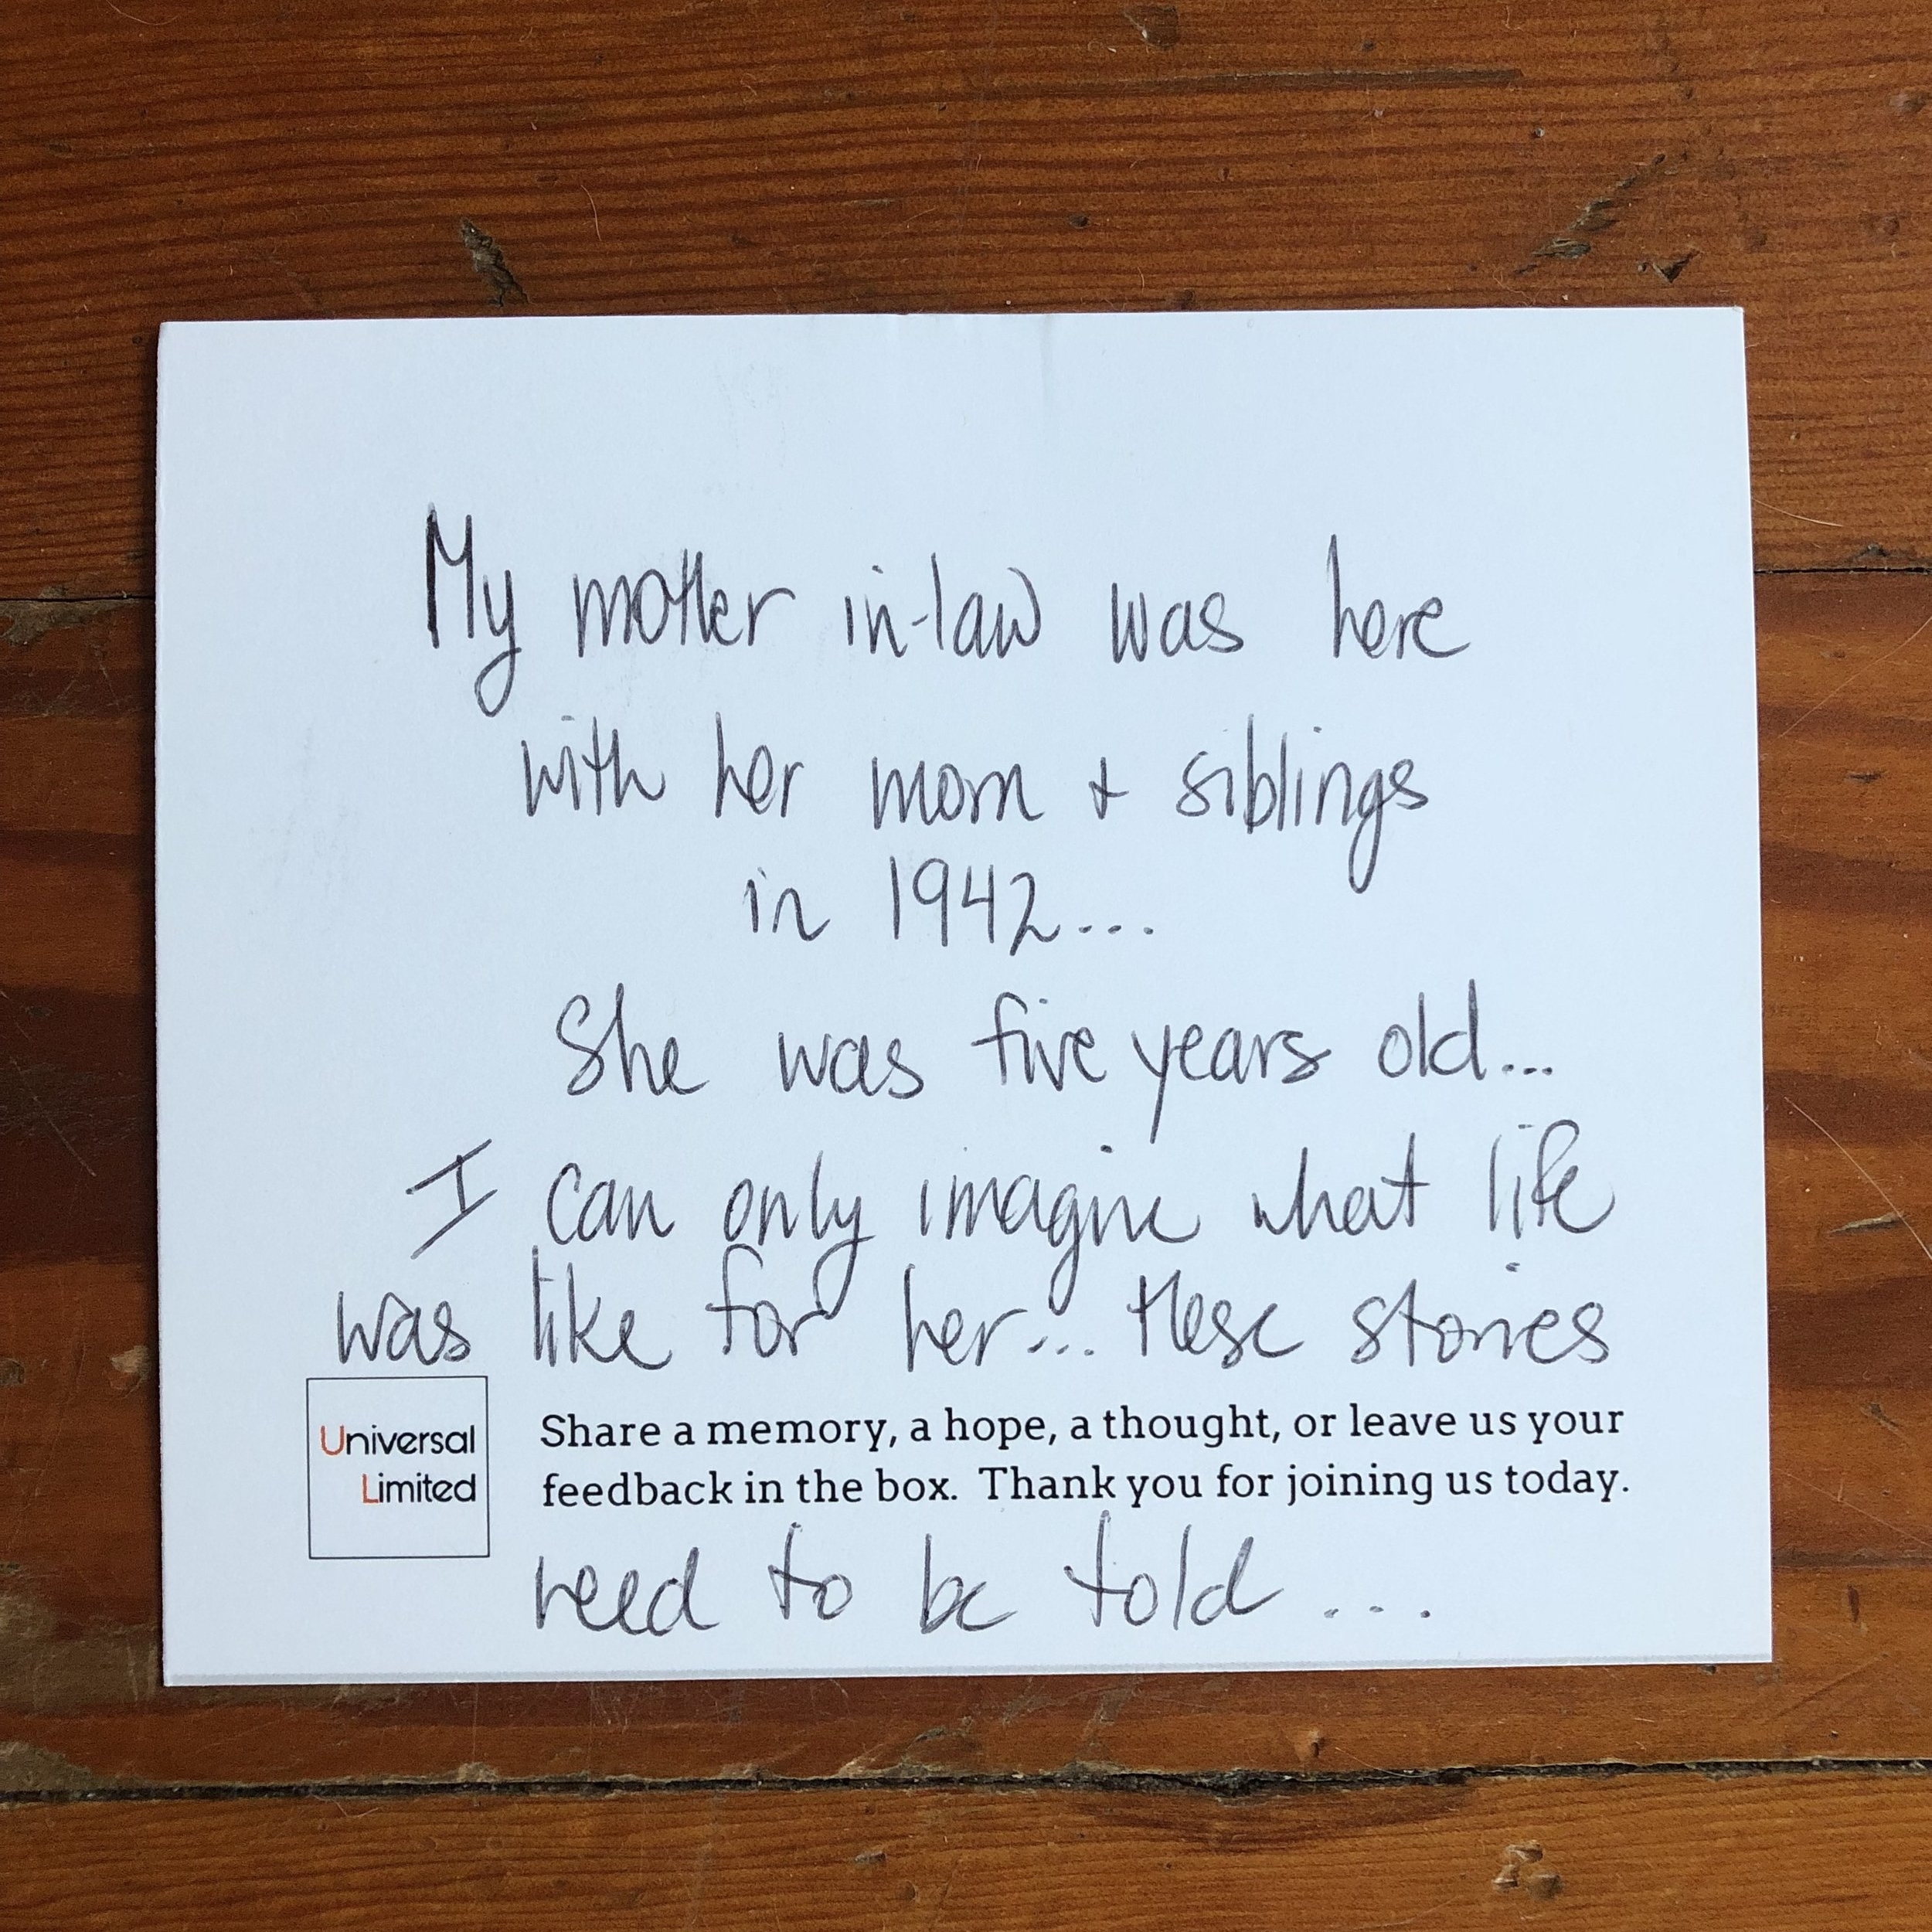 My mother in-law was here
with her mom + siblings
in 1942...
She was five years old...
I can only imagine what life
was like for her... these stories
Universal
Limited
Share a memory, a hope, a thought, or leave us your
feedback in the box. Thank you for joining us today.
need to be told ...